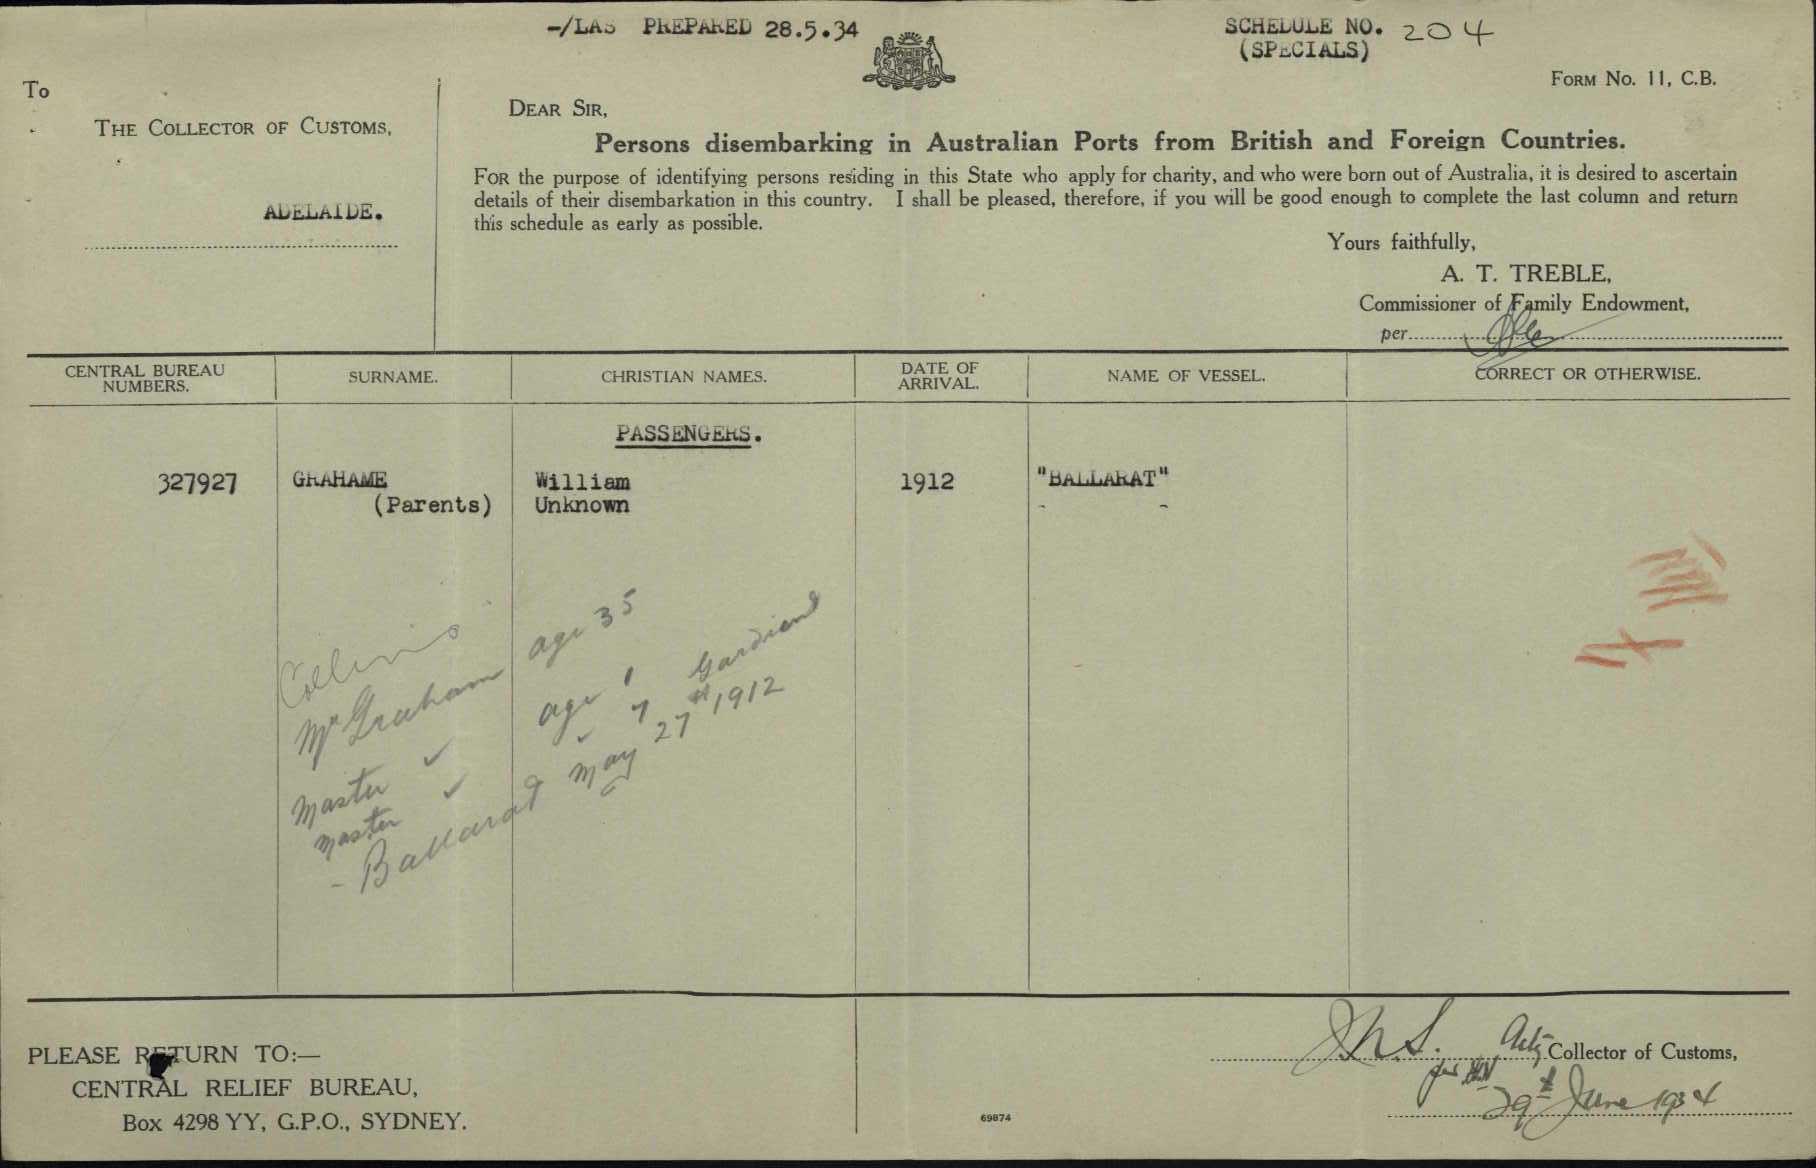 -/LAS PREPARED 28.5.34
SCHEDULE NO. 204
(SPECIALS)
FORM No. 11, C.B.
To
THE COLLECTOR OF CUSTOMS,
ADELAIDE.
DEAR SIR,
Persons disembarking in Australian Ports from British and Foreign Countries.
FOR the purpose of identifying persons residing in this State who apply for charity, and who were born out of Australia, it is desired to ascertain
details of their disembarkation in this country. I shall be pleased, therefore, if you will be good enough to complete the last column and return
this schedule as early as possible.
Yours faithfully,
A. T. TREBLE,
Commissioner of Family Endowment,
per
CENTRAL BUREAU NUMBERS. SURNAME. CHRISTIAN NAMES. DATE OF ARRIVAL. NAME OF VESSEL. CORRECT OR OTHERWISE.
PASSENGERS.
327927 GRAHAME William 1912 "BALLARAT"
(Parents) Unknown - -
Mr Graham age 35
Master ✓ age 1
Master ✓ ✓ 7 Gardiens
- Ballarat May 27th 1912
PLEASE RETURN TO:—
CENTRAL RELIEF BUREAU,
Box 4298 YY, G.P.O., SYDNEY.
69874
J.N.S. Actg Collector of Customs,
per
29th June 1934